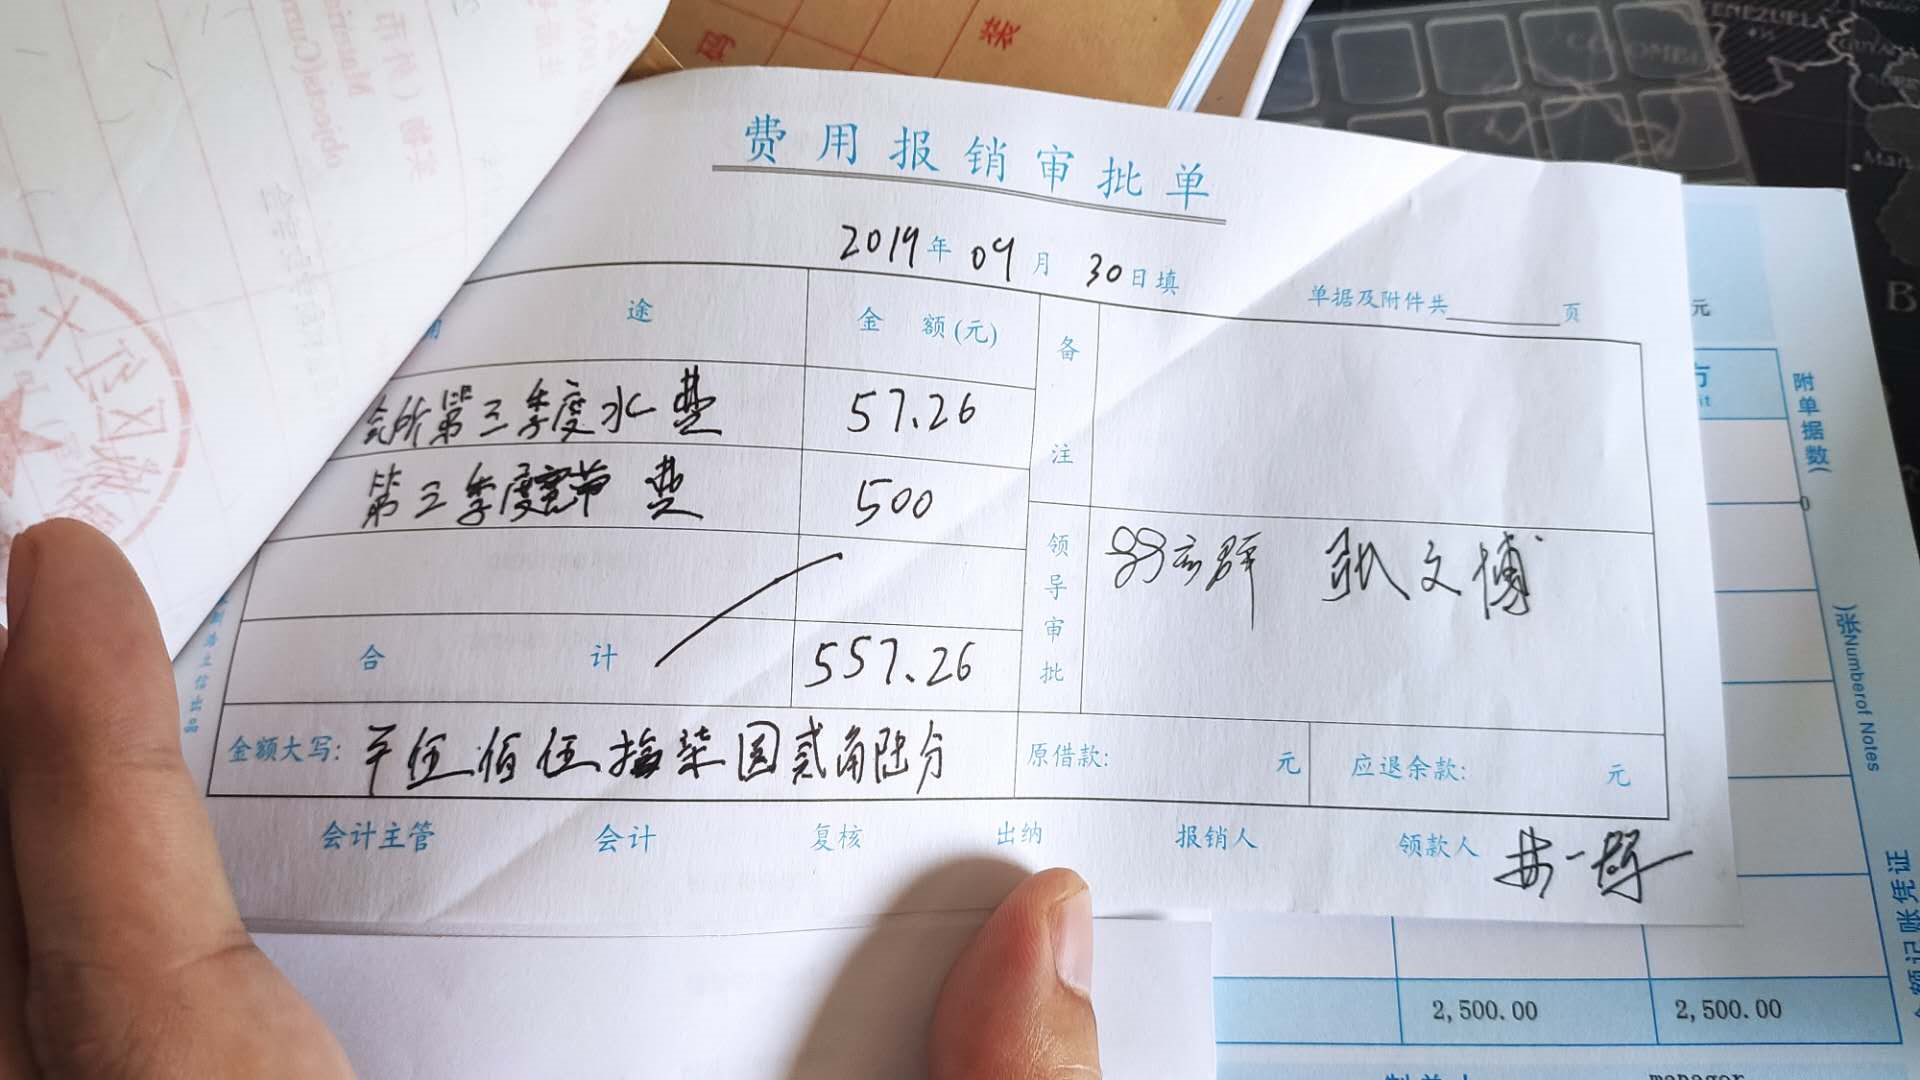 网
装
费用报销审批单
2019年 09月 30日填
单据及附件共 页
途 金 额(元) 备注
会所第三季度水费 57.26
第三季度 费 500
领导审批 张文博
合计 557.26
金额大写: 伍佰伍拾柒圆贰角陆分 原借款: 元 应退余款: 元
会计主管 会计 复核 出纳 报销人 领款人
元
附单据数(
0
)张Number of Notes
额记账凭证
2,500.00 2,500.00
制单人 manager
VENEZUELA
COLOMBIA